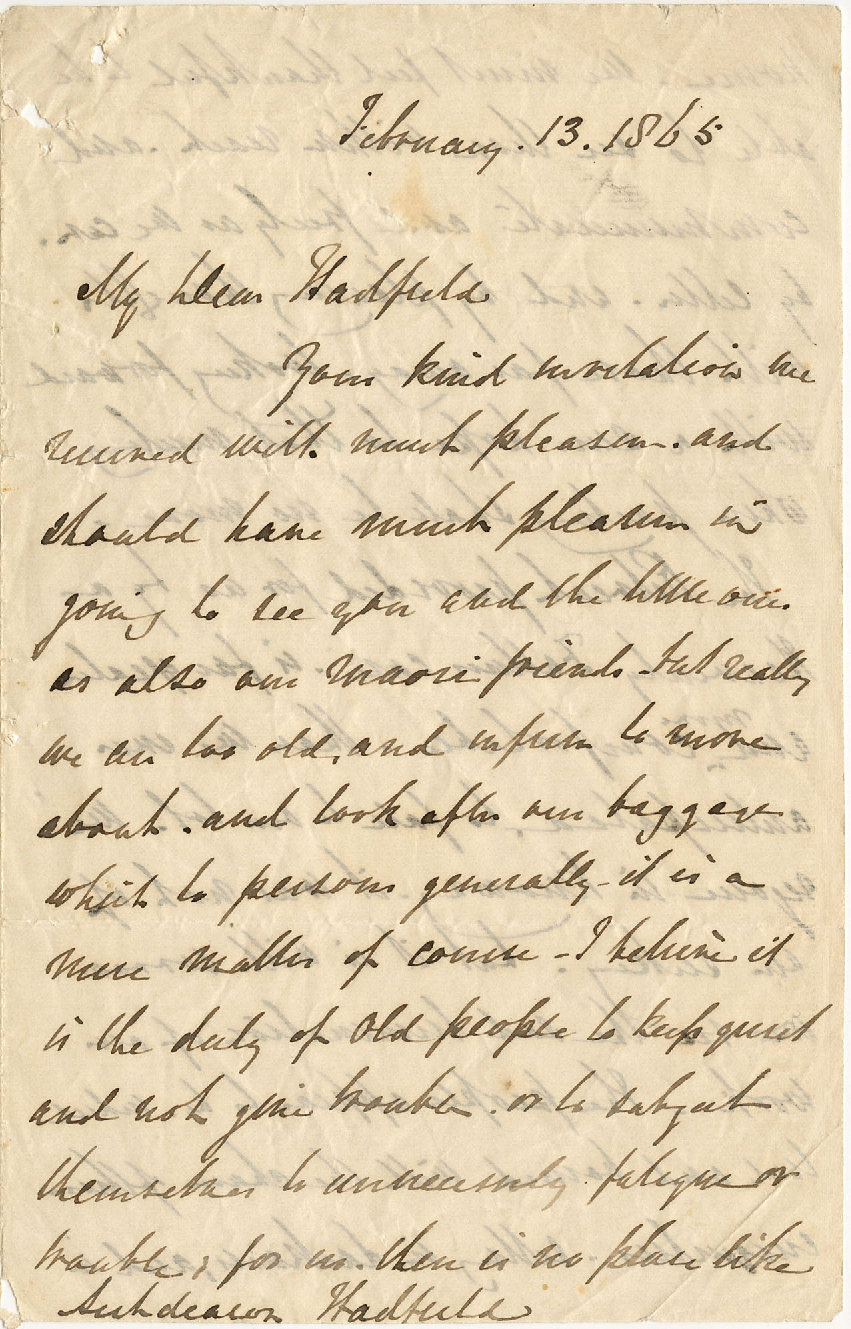 February. 13. 1865
My dear Hadfield
Your kind invitation we
received with much pleasure. and
should have much pleasure in
going to see you and the little ones.
as also our Maori friends - but really
we are too old, and infirm to move
about. and look after our baggage
which to persons generally - it is a
mere matter of course - I believe it
is the duty of old people to keep quiet
and not give trouble. or to subject
themselves to unnecessary fatigue or
trouble; for us. there is no place like
Archdeacon Hadfield